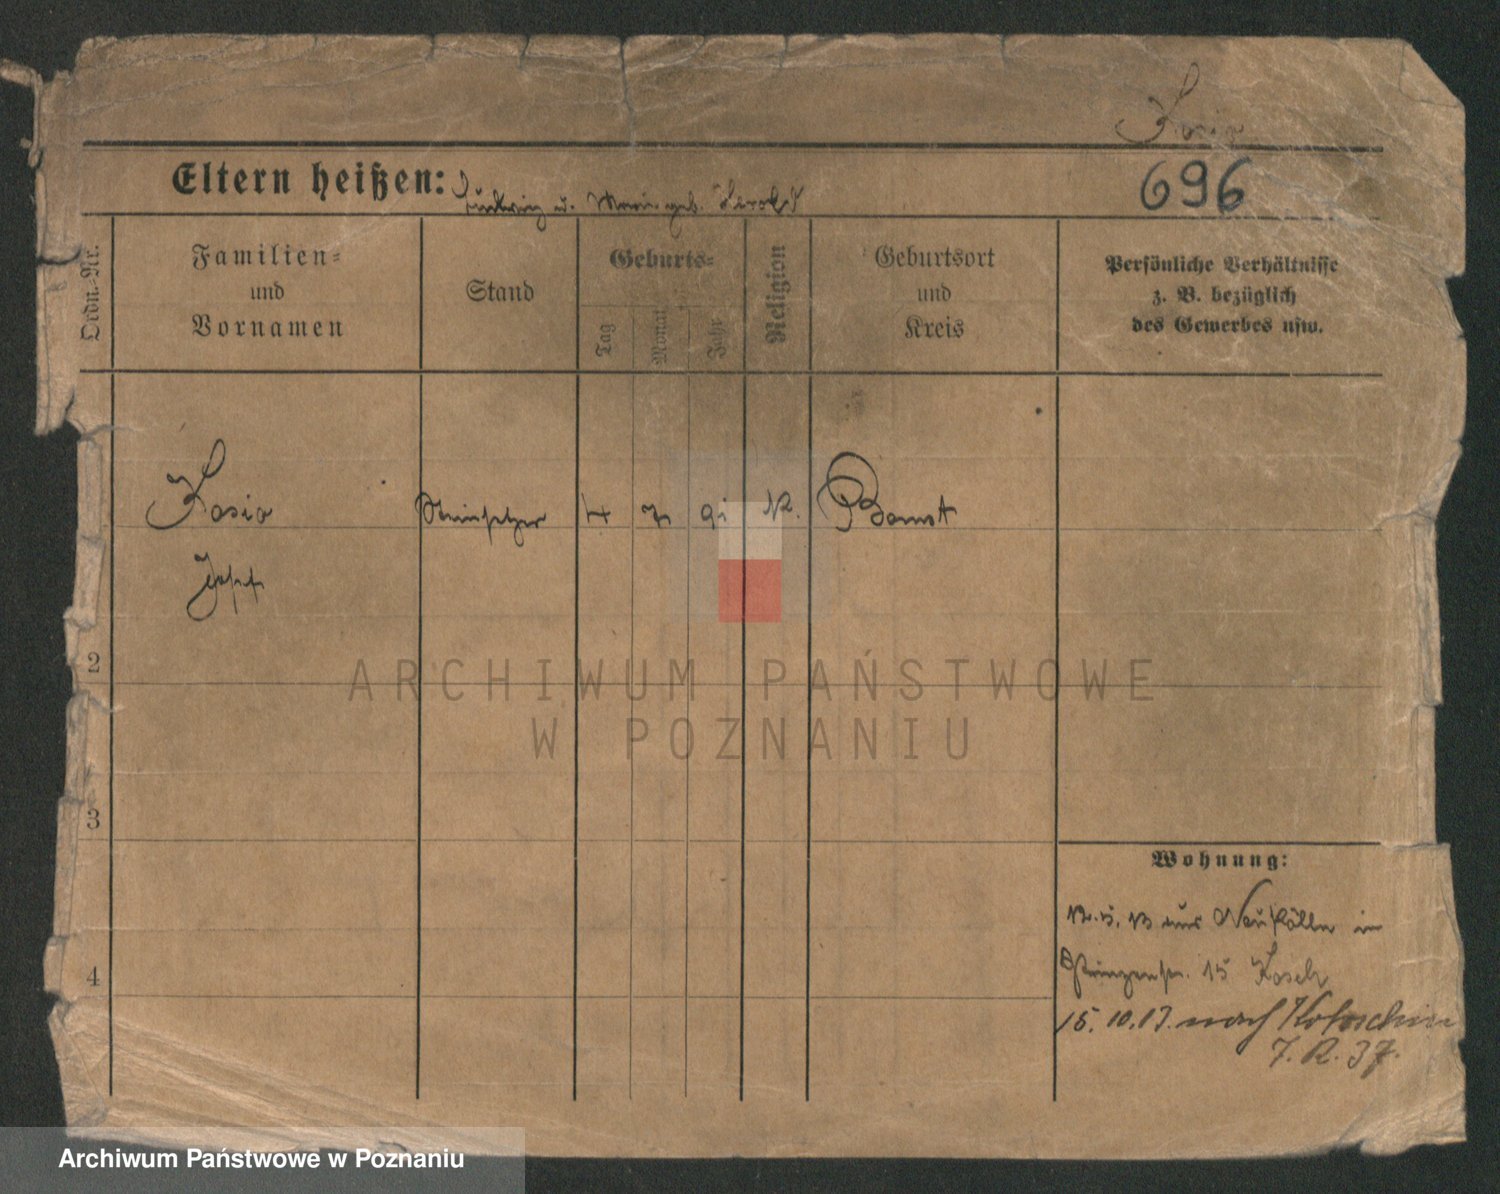 Kosio
Eltern heißen: Ludwig u. Marie geb.
696
Ordn.-Nr.
Familien-
und
Vornamen
Stand
Geburts-
Tag
Monat
Jahr
Religion
Geburtsort
und
Kreis
Persönliche Verhältnisse
z. B. bezüglich
des Gewerbes usw.
Kosio Steinsetzer 4 7 91 K. Bomst
Josef
2
3
4
Wohnung:
13 aus Neukölln in
Prinzenstr. 15
15. 10. 13. nach Krotoschin
7. R. 37.
ARCHIWUM PAŃSTWOWE
W POZNANIU
Archiwum Państwowe w Poznaniu